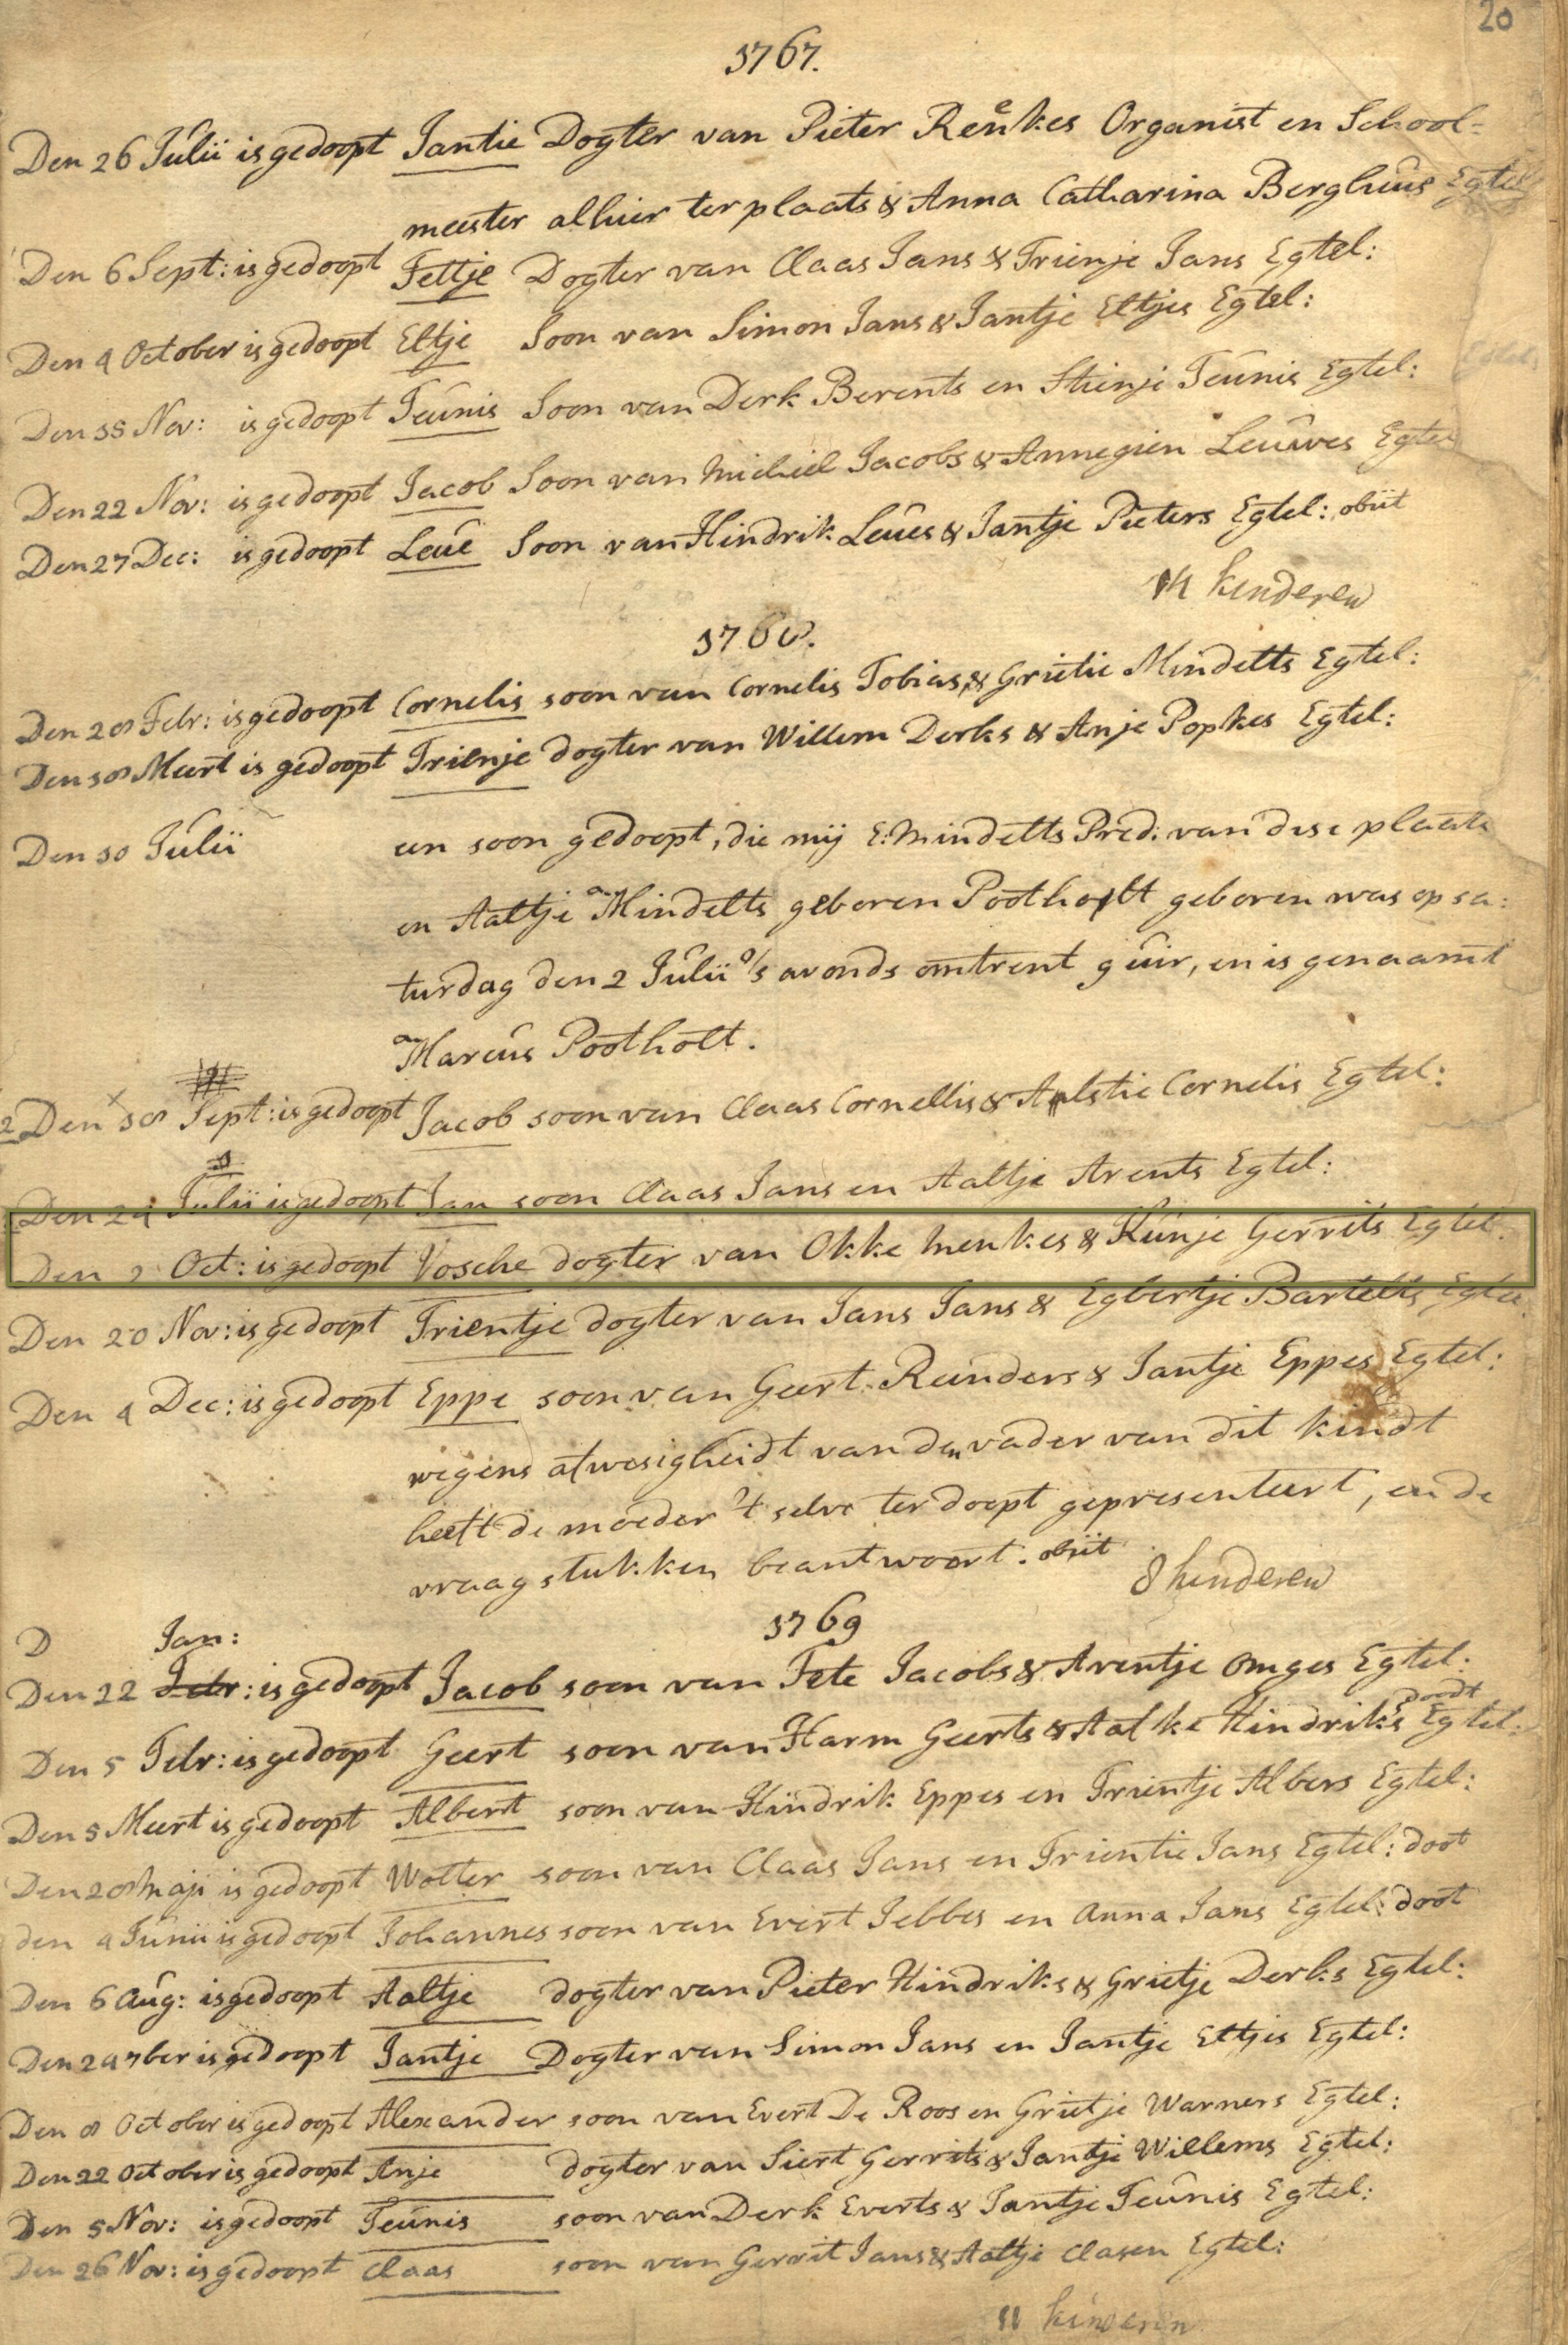 20
1767.
Den 26 Julii is gedoopt Jantie Dogter van Pieter Renkes Organist en School=
meester alhier ter plaats & Anna Catharina Berghuus Egtel
Den 6 Sept: is gedoopt Fettje Dogter van Claas Jans & Trienje Jans Egtel:
Den 4 October is gedoopt Eltje Soon van Simon Jans & Jantje Eltjes Egtel:
Den 15 Nov: is gedoopt Teunis Soon van Derk Berents en Stienje Teunis Egtel:
Den 22 Nov: is gedoopt Jacob Soon van Michiel Jacobs & Annegien Leuwes Egtel
Den 27 Dec: is gedoopt Leue Soon van Hindrik Leues & Jantje Pieters Egtel: obiit
14 kinderen
1768.
Den 28 Febr: is gedoopt Cornelis soon van Cornelis Tobias & Grietie Mindelts Egtel:
Den 18 Meert is gedoopt Trienje dogter van Willem Derks & Anje Popkes Egtel:
Den 10 Julii een soon gedoopt, die mij E: Mindelts Pred: van dese plaats
en Aaltje Mindelts geboren Pootholt geboren was op sa:
turdag den 2 Julii 's avonds omtrent 9 uir, en is genaamt
Marcus Pootholt.
2 Den 18 Sept: is gedoopt Jacob soon van Claas Cornellis & Aalstie Cornelis Egtel:
1 Den 24 Julii is gedoopt Jan soon Claas Jans en Aaltje Arents Egtel:
Den 2 Oct: is gedoopt Vosche dogter van Okke Menkes & Kunje Gerrits Egtel.
Den 20 Nov: is gedoopt Trientje dogter van Jans Jans & Egbertje Bartelts Egtel
Den 4 Dec: is gedoopt Eppe soon van Geert Reinders & Jantje Eppes Egtel:
wegens afwesigheidt van den vader van dit kindt
heeft de moeder 't selve ter doopt gepresenteert, en de
vraagstukken beantwoort. obiit
8 kinderen
1769
D Jan:
Den 22 Febr: is gedoopt Jacob soon van Fete Jacobs & Arentje Omges Egtel:
Den 5 Febr: is gedoopt Geert soon van Harm Geerts & Aalke Hindriks Egtel: doodt
Den 5 Meert is gedoopt Albert soon van Hindrik Eppes en Trientje Albers Egtel:
Den 28 Maji is gedoopt Wolter soon van Claas Jans en Trientie Jans Egtel: doot
den 4 Junii is gedoopt Johannes soon van Evert Jebbes en Anna Jans Egtel: doot
Den 6 Aug: is gedoopt Aaltje dogter van Pieter Hindriks & Grietje Derks Egtel:
Den 24 7ber is gedoopt Jantje Dogter van Simon Jans en Jantje Eltjes Egtel:
Den 8 October is gedoopt Alexander soon van Evert De Roos en Grietje Warners Egtel:
Den 22 October is gedoopt Anje dogter van Siert Gerrits & Jantje Willems Egtel:
Den 5 Nov: is gedoopt Teunis soon van Derk Everts & Jantje Teunis Egtel:
Den 26 Nov: is gedoopt Claas soon van Gerrit Jans & Aaltje Clasen Egtel:
11 kinderen